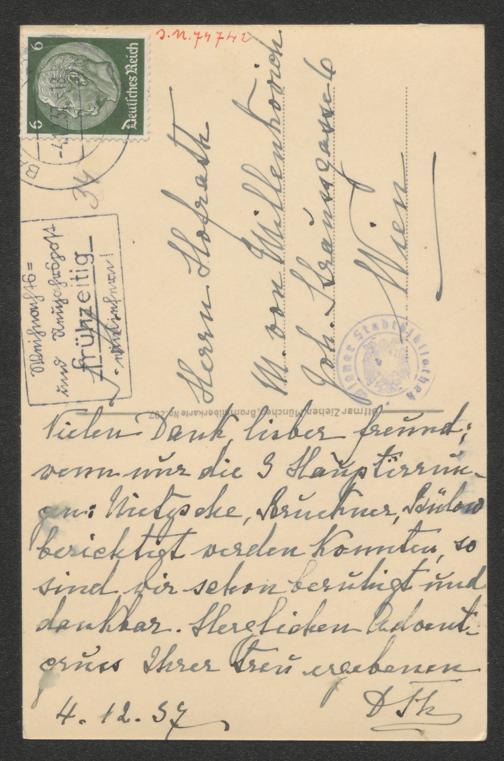 J.N. 74742
6 6
Deutsches Reich
34
Weihnachts=
und Neujahrspost
frühzeitig
einliefern!
Herrn Hofrath
M. von Millenkovich
Joh. Straussgasse 6
Wien
Wiener Stadtbibliothek
Ottmar Zieher, München, Bromsilberkarte No.
Vielen Dank, lieber Freund;
wenn nur die 3 Hauptirrun-
gen: Nietzsche, Bruckner, Bülow
berichtigt werden konnten, so
sind wir schon beruhigt und
dankbar. Herzlichen Advent-
gruss Ihrer treu ergebenen
4. 12. 37